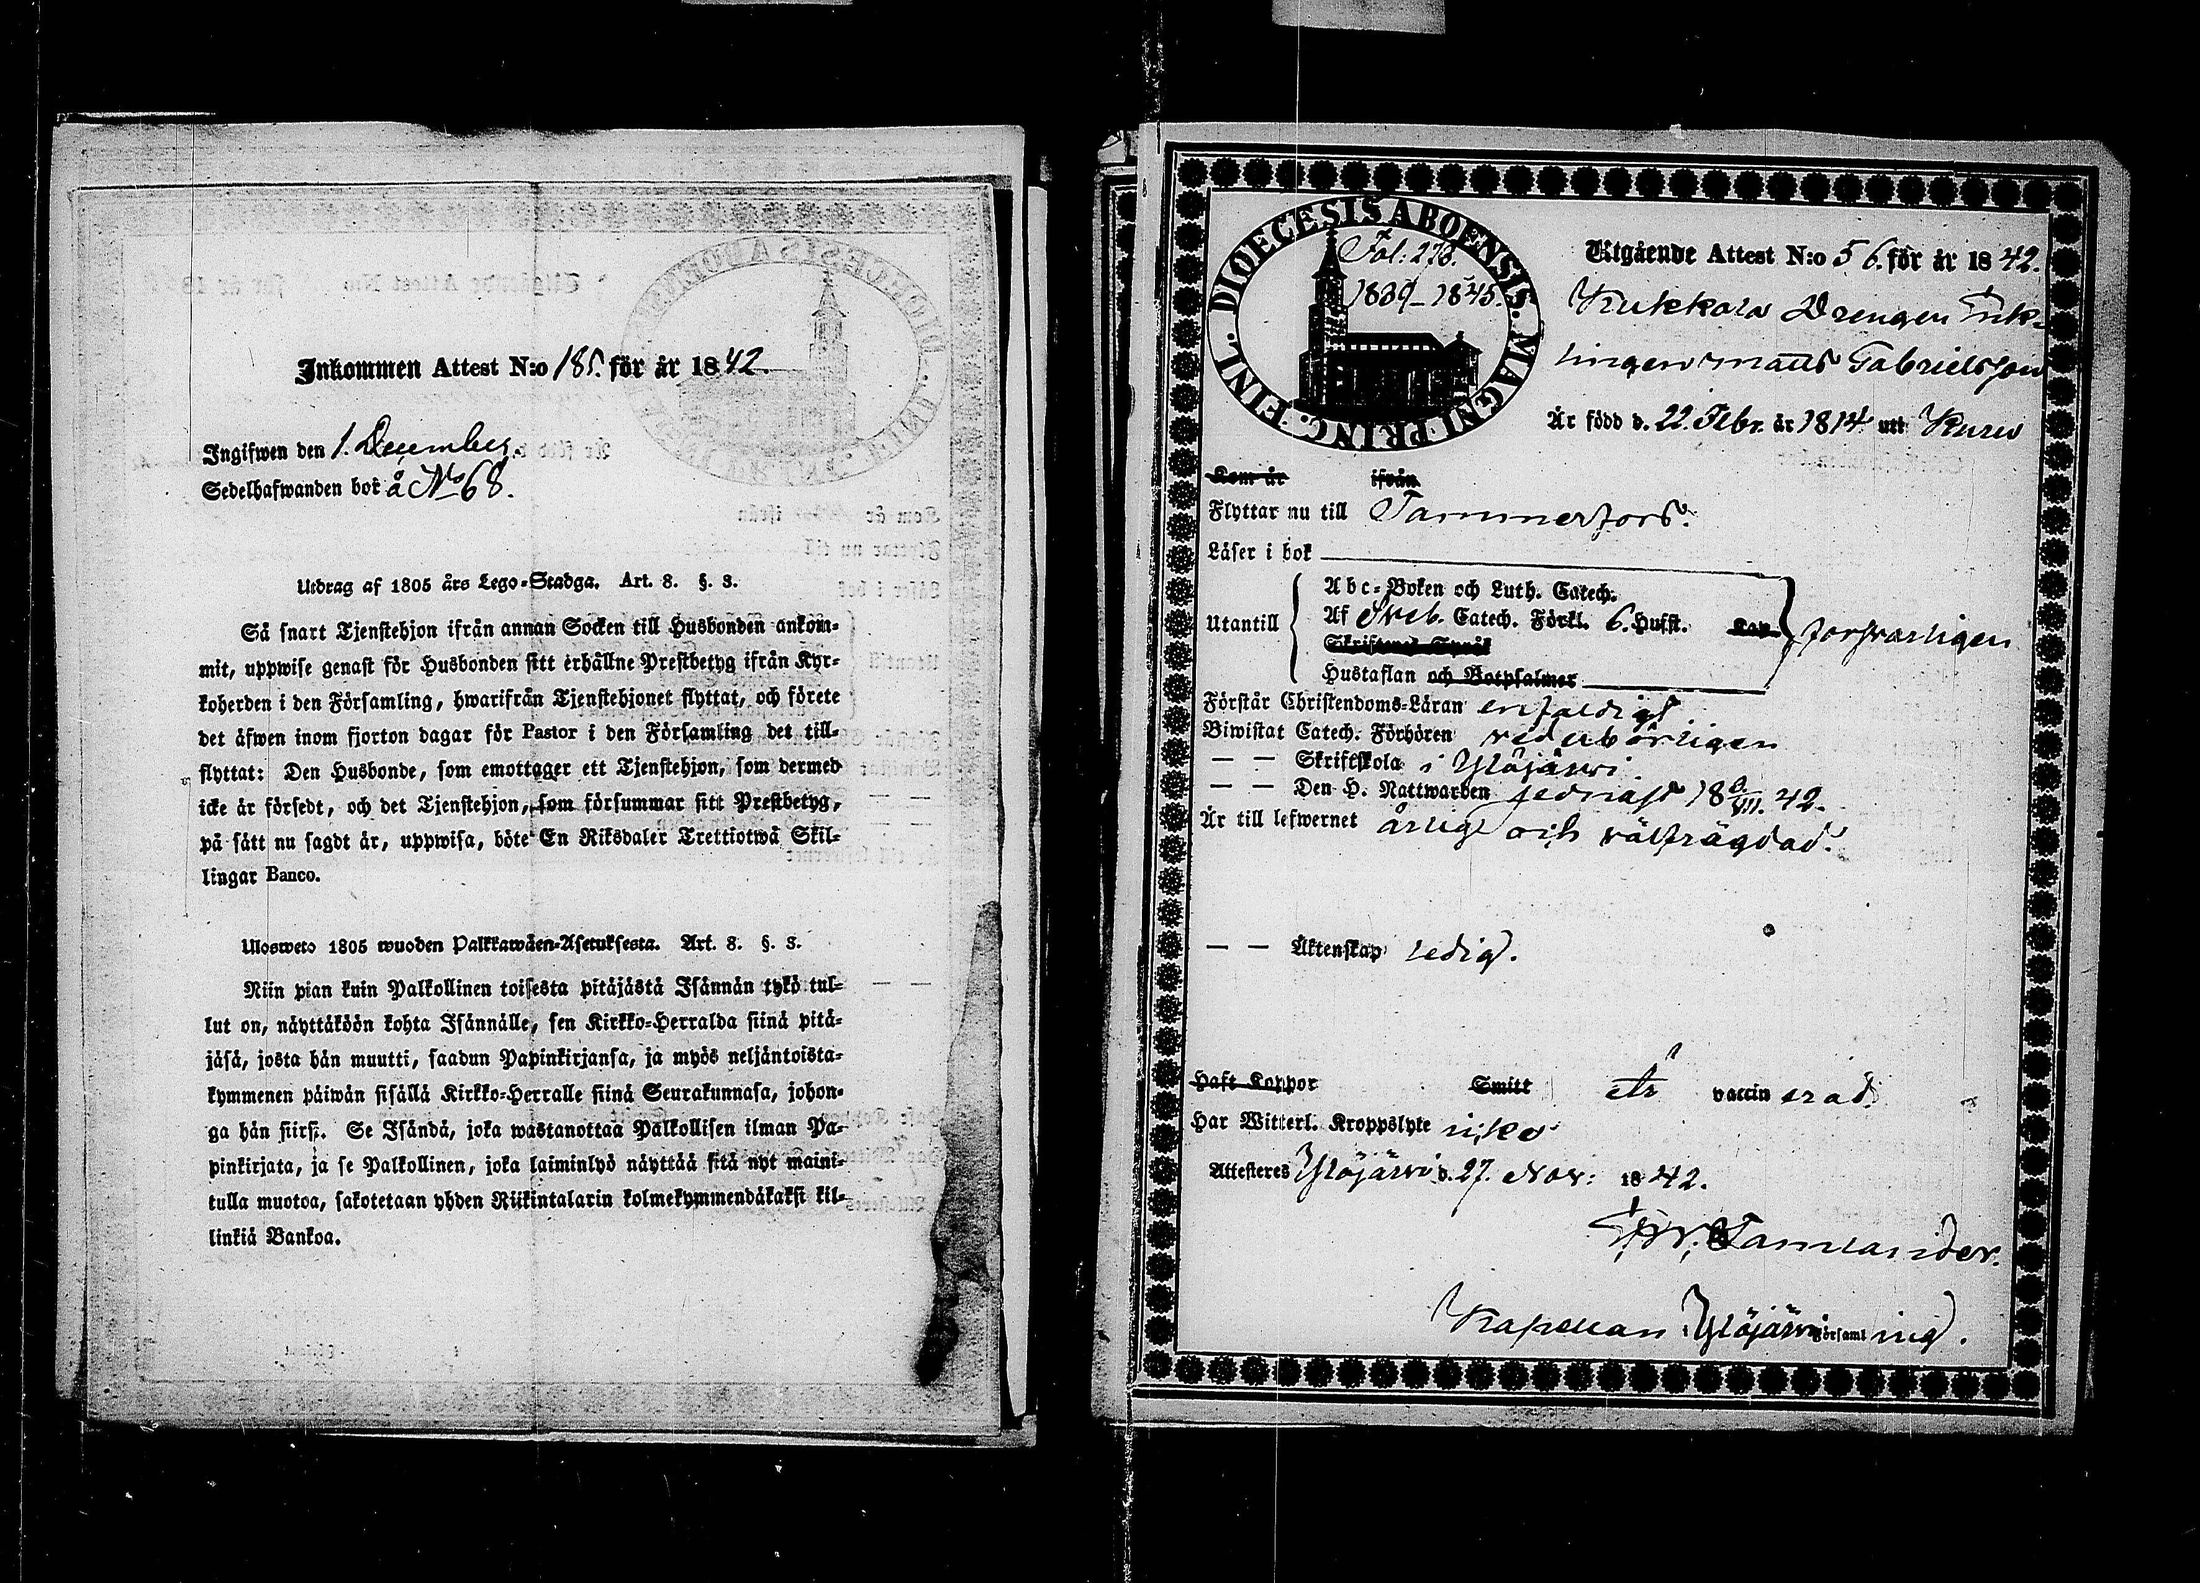 Inkommen Attest N:o 185. för år 1842.
Ingifwen den 1. December.
Sedelhafwanden bor å No 68.
Utdrag af 1805 års Lego-Stadga. Art. 8. §. 3.
Så snart Tjenstehjon ifrån annan Socken till Husbonden ankom-
mit, uppwise genast för Husbonden sitt erhållne Prestbetyg ifrån Kyr-
koherden i den Församling, hwarifrån Tjenstehjonet flyttat, och förete
det äfwen inom fjorton dagar för Pastor i den Församling det till-
flyttat: Den Husbonde, som emottager ett Tjenstehjon, som dermed
icke är försedt, och det Tjenstehjon, som försummar sitt Prestbetyg,
på sätt nu sagdt är, uppwisa, böte En Riksdaler Trettiotwå Skil-
lingar Banco.
Ulosweto 1805 wuoden Palkkawäen-Asetuksesta. Art. 8. §. 3.
Niin pian kuin Palkollinen toisesta pitäjästä Isännän tykö tul-
lut on, näyttäköön kohta Isännälle, sen Kirkko-Herralda siinä pitä-
jäsä, josta hän muutti, saadun Papinkirjansa, ja myös neljäntoista-
kymmenen päiwän sisällä Kirkko-Herralle siinä Seurakunnasa, johon-
ga hän siirsi. Se Isändä, joka wastanottaa Palkollisen ilman Pa-
pinkirjata, ja se Palkollinen, joka laiminlyö näyttää sitä nyt maini-
tulla muotoa, sakotetaan yhden Riikintalarin kolmekymmendäkaksi kil-
linkiä Bankoa.
DIOECESIS ABOENSIS. MAGNI PRINC. FINL.
Fol: 278.
1839-1845.
Utgående Attest N:o 56. för år 1842.
Kukkola Drengen Enk-
lingen Matts Gabrielsson
Är född d. 22. Febr. år 1814 uti Kuru
Kom år ifrån
Flyttar nu till Tammerfors.
Läser i bok
Utantill
Abc-Boken och Luth. Catech.
Af Sveb. Catech. Förkl. 6. Hufst. Kap. försvarligen
Skriftenes Språk
Hustaflan och Botpsalmer
Förstår Christendoms-Läran enfaldigt
Biwistat Catech. Förhören vederbörligen
— — Skriftskola i Ylöjärvi
— — Den H. Nattwarden sednast 18 VII. 42.
Är till lefwernet ärlig och välfrägdad.
— — Äktenskap ledig.
Haft Koppor Smitt är vaccinerad.
Har Witterl. Kroppslyte icke
Attesteres Ylöjärvi d. 27. Nov: 1842.
Fr. Tamlander.
Kapellan i Ylöjärvi Församling.